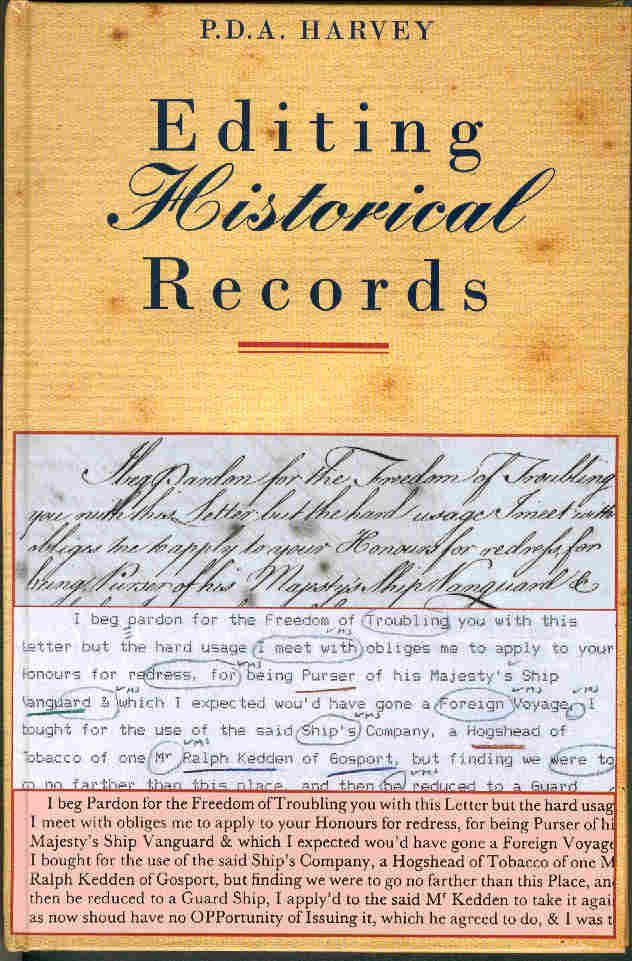 P.D.A. HARVEY
Editing
Historical
Records
I beg Pardon for the Freedom of Troubling
you with this Letter but the hard usage I meet with
obliges me to apply to your Honours for redress, for
being Purser of his Majesty's Ship Vanguard &
I beg pardon for the Freedom of Troubling you with this
Letter but the hard usage I meet with obliges me to apply to your
Honours for redress, for being Purser of his Majesty's Ship
Vanguard & which I expected wou'd have gone a Foreign Voyage, I
bought for the use of the said Ship's Company, a Hogshead of
Tobacco of one Mr Ralph Kedden of Gosport, but finding we were to
go no farther than this place, and then be reduced to a Guard
I beg Pardon for the Freedom of Troubling you with this Letter but the hard usag
I meet with obliges me to apply to your Honours for redress, for being Purser of hi
Majesty's Ship Vanguard & which I expected wou'd have gone a Foreign Voyage
I bought for the use of the said Ship's Company, a Hogshead of Tobacco of one M
Ralph Kedden of Gosport, but finding we were to go no farther than this Place, an
then be reduced to a Guard Ship, I apply'd to the said Mr Kedden to take it agai
as now shoud have no OPPortunity of Issuing it, which he agreed to do, & I was t